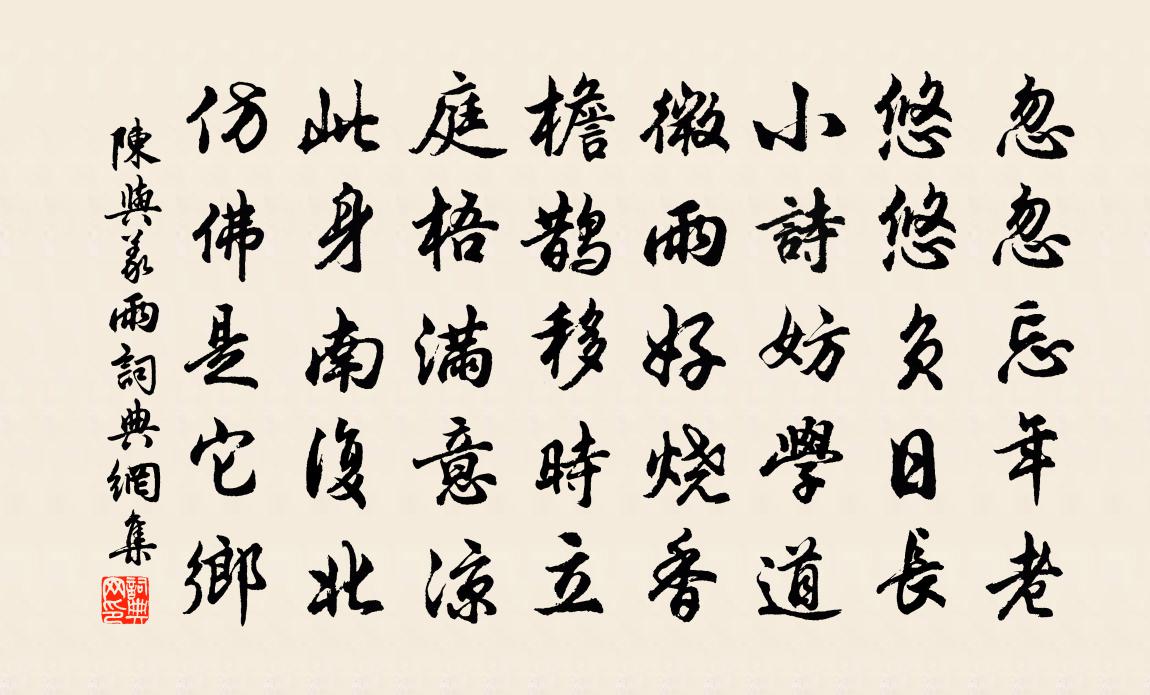 忽忽忘年老
悠悠负日長
小詩妨學道
微雨好烧香
檐鵲移時立
庭梧滿意涼
此身南復北
仿佛是它鄉
陳與義雨詞典網集
詞典网印